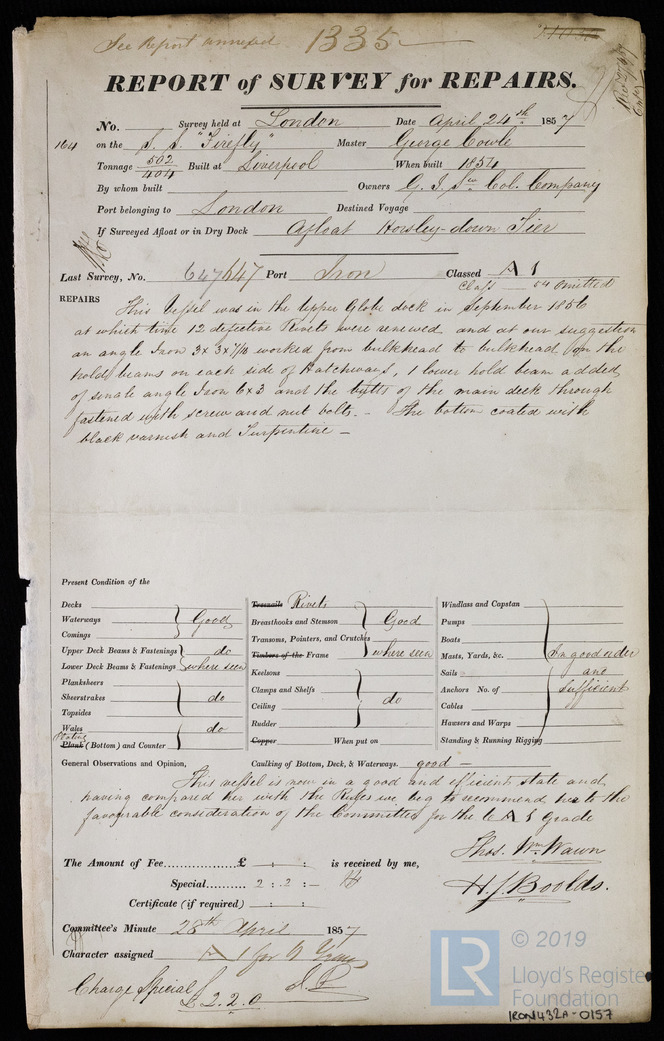 See Report annexed 1335
REPORT of SURVEY for REPAIRS.
No. Survey held at London Date April 24th 1857
164 on the S. S. "Firefly" Master George Cowle
Tonnage 502/404 Built at Liverpool When built 1854
By whom built Owners G. I. Scw Col. Company
Port belonging to London Destined Voyage
If Surveyed Afloat or in Dry Dock Afloat Horsley-down Tier
Last Survey, No. 647 647 Port Iron Classed A 1
class 54 omitted
REPAIRS This Vessel was in the Upper Globe dock in September 1856
at which time 12 defective Rivets were renewed and at our suggestion
an angle Iron 3 x 3 x 7/16 worked from bulkhead to bulkhead on the
hold beams on each side of Hatchways, 1 lower hold beam added
of single angle Iron 6x3 and the butts of the main deck through
fastened with screw and nut bolts. - The bottom coated with
black varnish and Turpentine -
Present Condition of the
Decks
Waterways Good
Comings
Upper Deck Beams & Fastenings do
Lower Deck Beams & Fastenings where seen
Planksheers
Sheerstrakes do
Topsides
Wales do
Plates
Plank (Bottom) and Counter
Treenails Rivets
Breasthooks and Stemson Good
Transoms, Pointers, and Crutches
Timbers of the Frame where seen
Keelsons
Clamps and Shelfs
Ceiling do
Rudder
Copper When put on
Windlass and Capstan
Pumps
Boats
Masts, Yards, &c. In good order
Sails and
Anchors No. of sufficient
Cables
Hawsers and Warps
Standing & Running Rigging
General Observations and Opinion, Caulking of Bottom, Deck, & Waterways. good -
This vessel is now in a good and efficient state and
having compared her with the Rules we beg to recommend her to the
favourable consideration of the Committee for the A 1 Grade
Thos. Wm. Wawn
H. J. Boolds.
The Amount of Fee £ : : is received by me,
Special 2 : 2 : -
Certificate (if required) : :
Committee's Minute 28th April 1857
Character assigned A 1 for 9 Years
Charge Special
£ 2.2.0
LR © 2019
Lloyd's Register
Foundation
IRON432A-0157